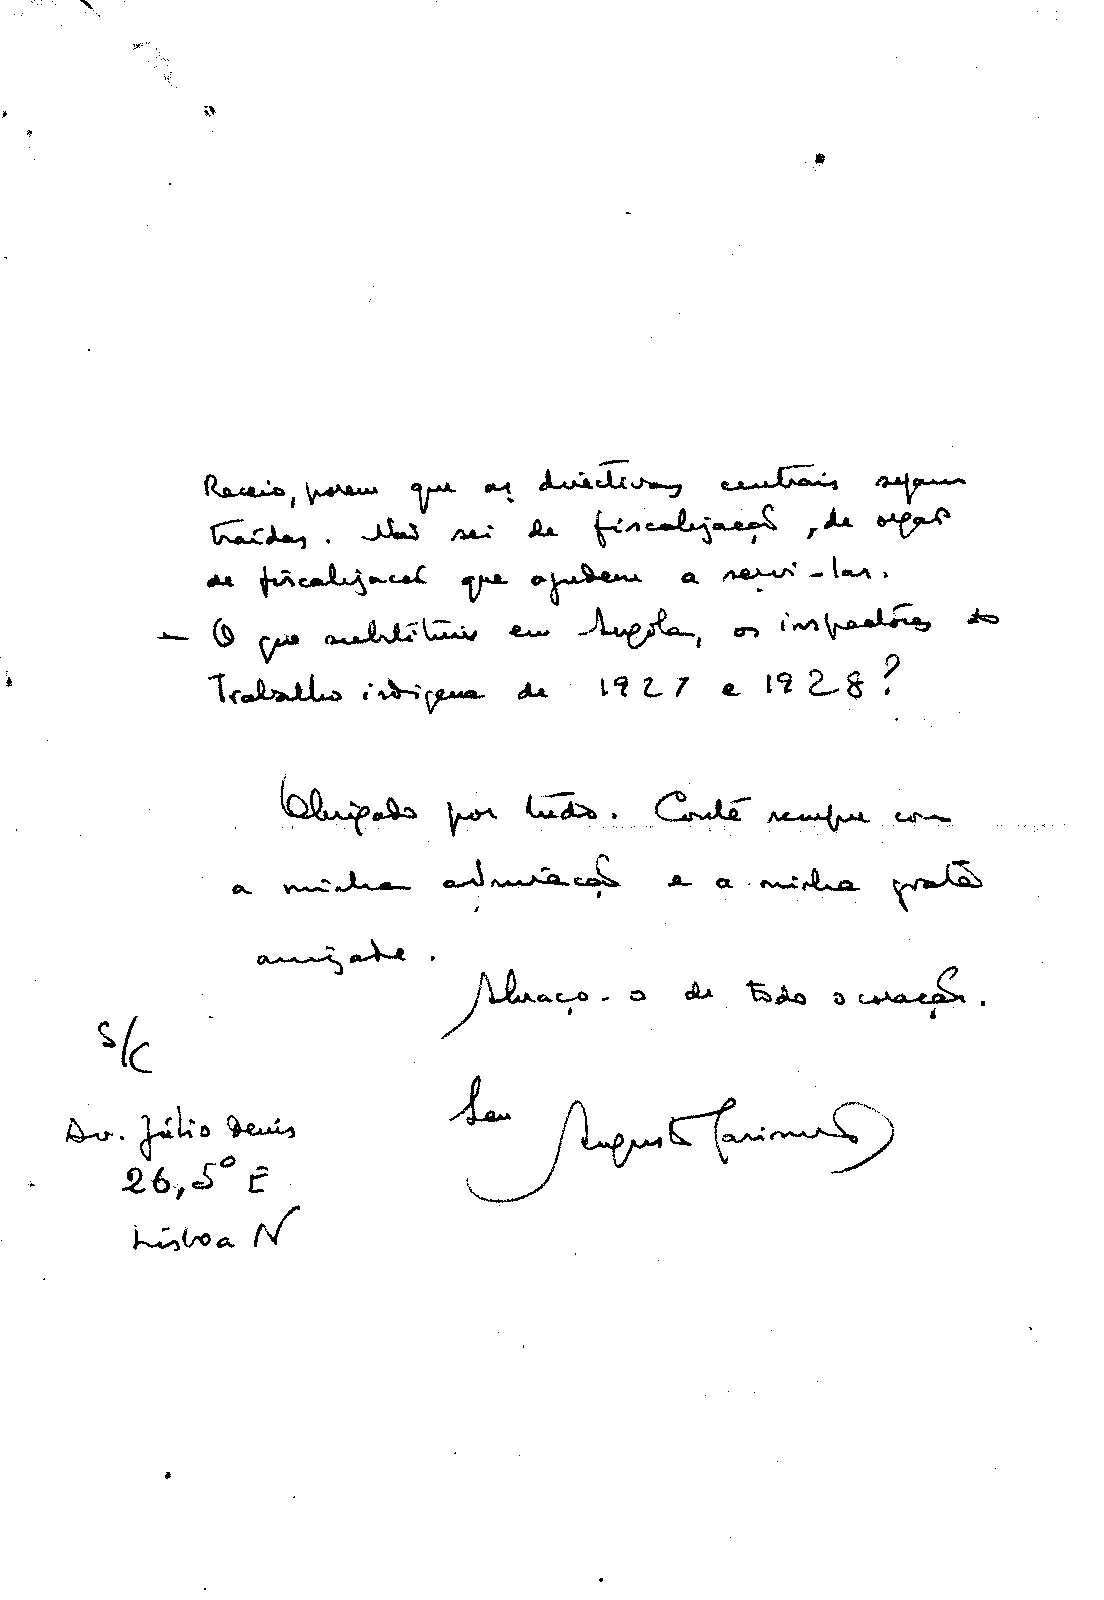 Receio, porem que as directivas centrais sejam
traídas. Não sei de fiscalização, de orgão
de fiscalização que ajudem a servi-las.
— O que substituiu em Angola, os inspectôres do
Trabalho indígena de 1927 e 1928?
Obrigado por tudo. Conte sempre com
a minha admiração e a minha grata
amizade.
Abraço-o de todo o coração.
S/C
Seu
Augusto Casimiro
Av. Júlio Denis
26, 5º E
Lisboa N